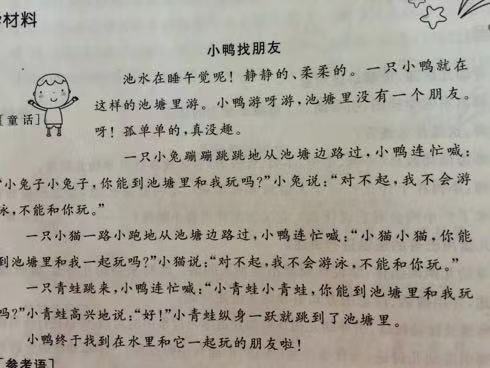 材料
小鸭找朋友
池水在睡午觉呢！静静的、柔柔的。一只小鸭就在
这样的池塘里游。小鸭游呀游，池塘里没有一个朋友。
[童话]
呀！孤单单的，真没趣。
一只小兔蹦蹦跳跳地从池塘边路过，小鸭连忙喊：
“小兔子小兔子，你能到池塘里和我玩吗？”小兔说：“对不起，我不会游
泳，不能和你玩。”
一只小猫一路小跑地从池塘边路过，小鸭连忙喊：“小猫小猫，你能
到池塘里和我一起玩吗？”小猫说：“对不起，我不会游泳，不能和你玩。”
一只青蛙跳来，小鸭连忙喊：“小青蛙小青蛙，你能到池塘里和我玩
吗？”小青蛙高兴地说：“好！”小青蛙纵身一跃就跳到了池塘里。
小鸭终于找到在水里和它一起玩的朋友啦！
[参考语]